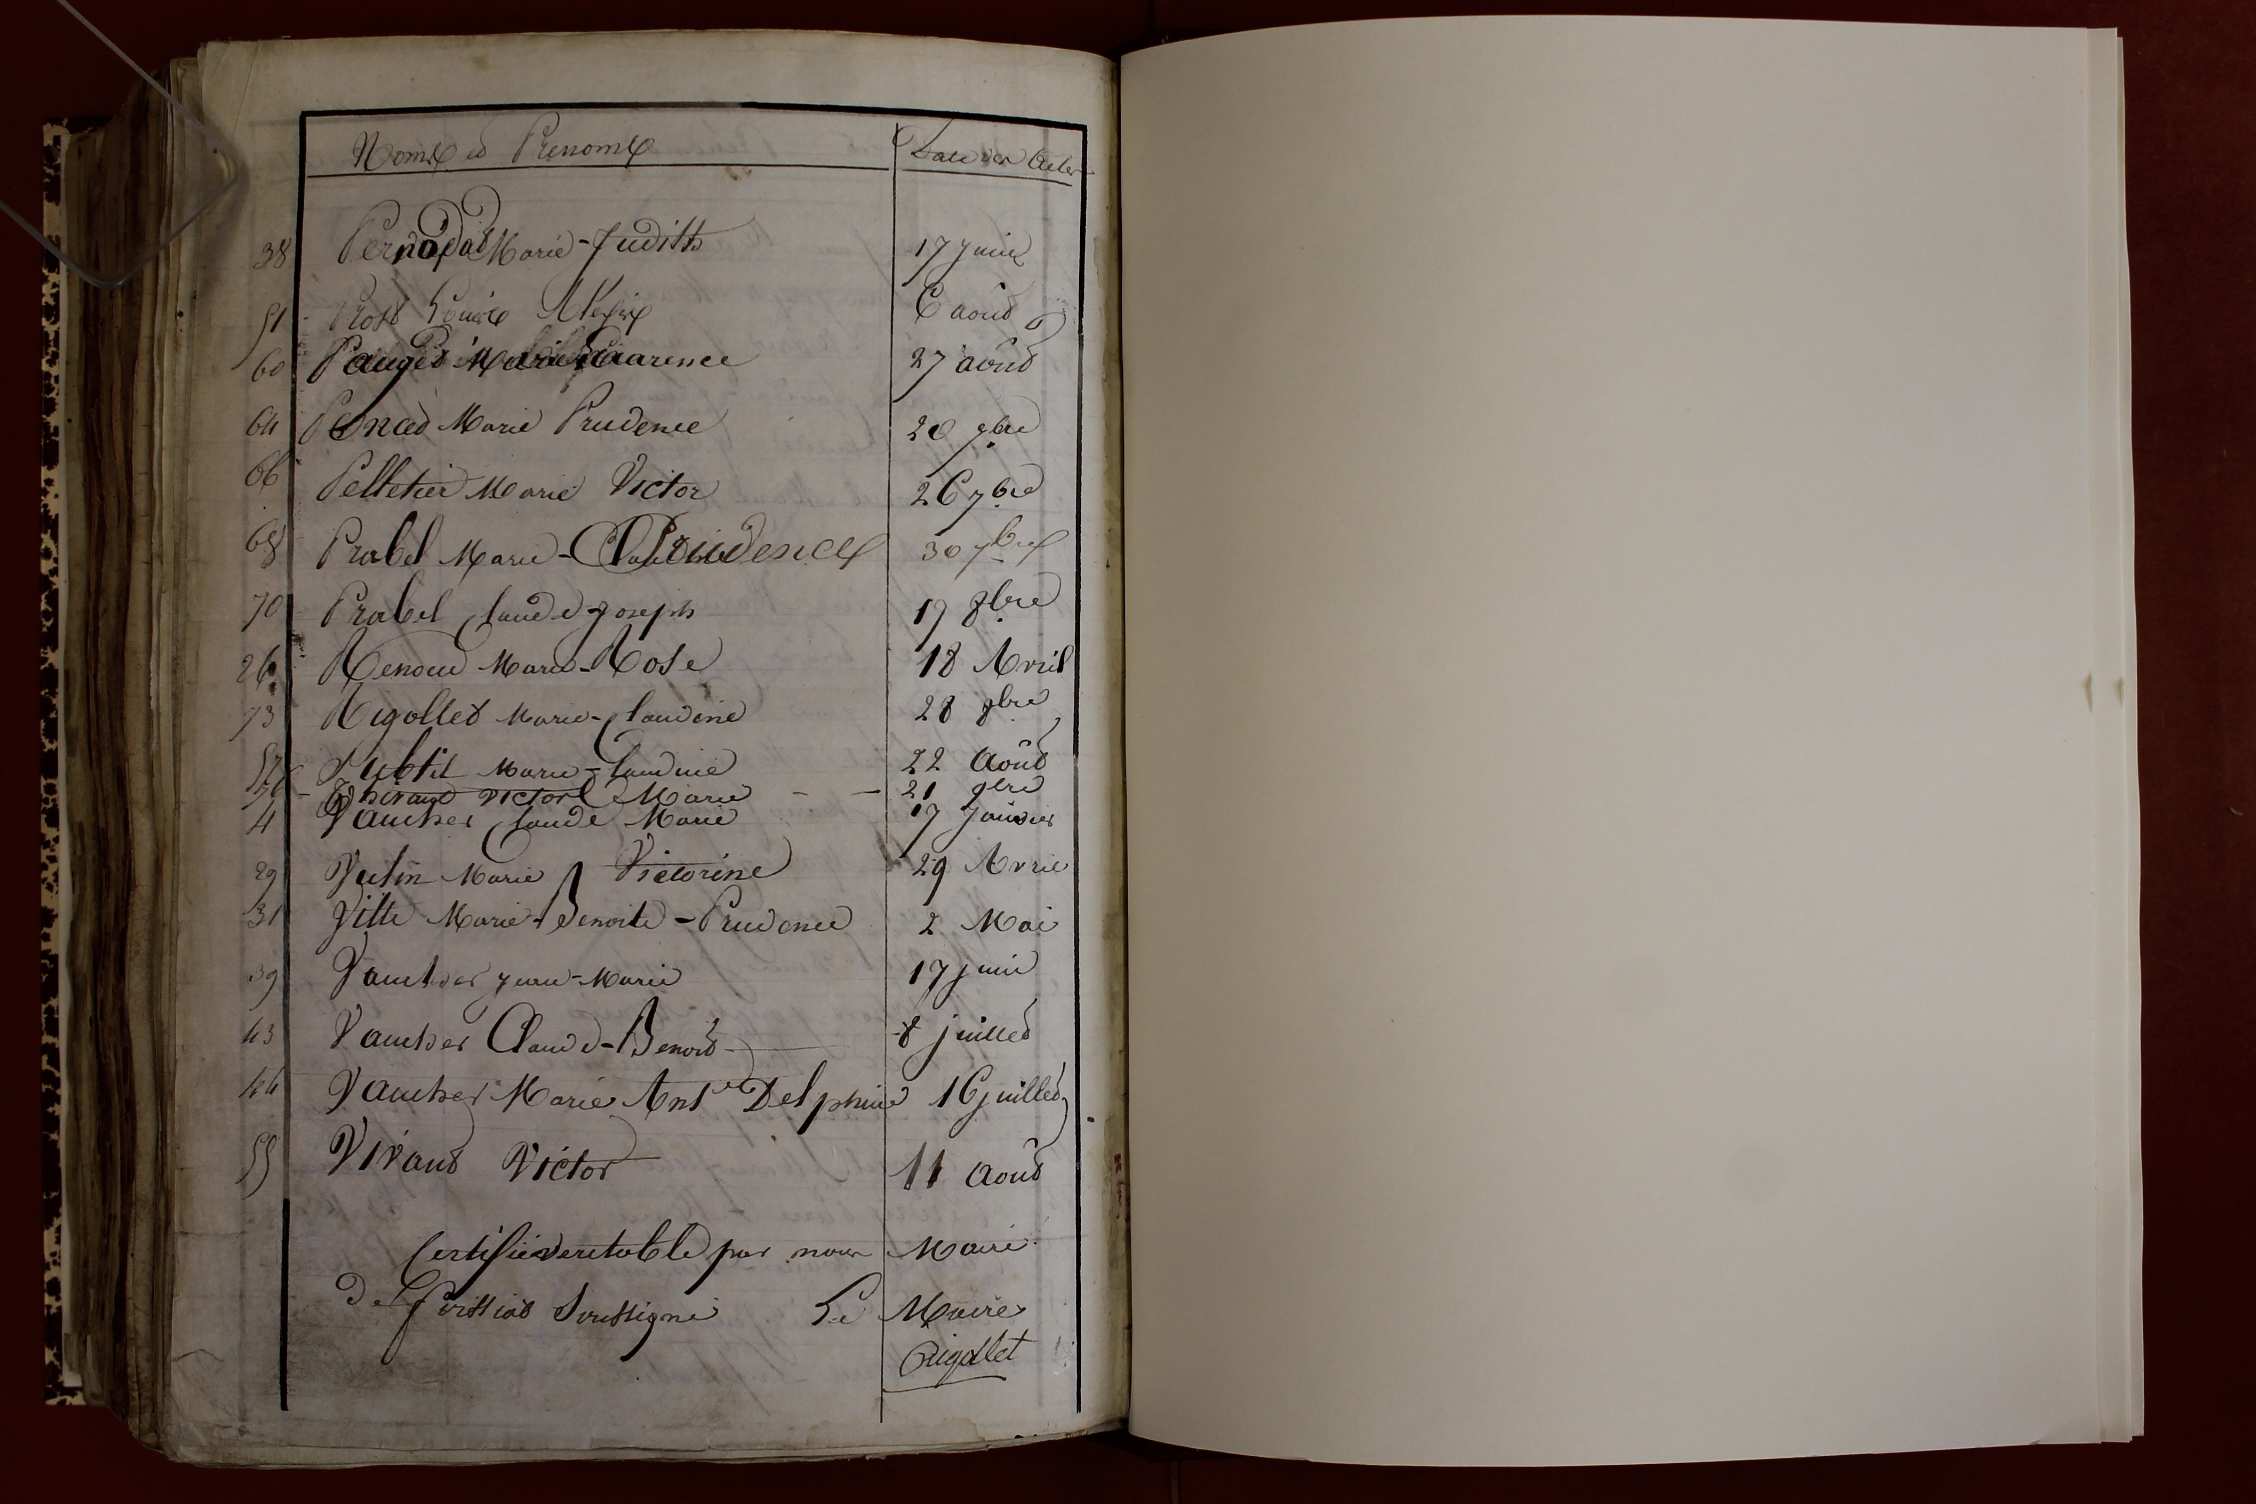 Noms et Prenoms Date des Actes
38 Marie-Judith 17 juin
51 - Prost Louise Alexis 6 aoud
60 Pauget Marie 27 aoud
64 Poncet Marie Prudence 20 7bre
66 Pelletier Marie Victor 26 7bre
68 Prabel Marie - Prudence 30 7bre
70 Prabel Claude Joseph 19 8bre
26 Renoud Marie-Rose 18 Avril
73 Rigollet Marie-Claudine 28 8bre
57 Subtil Marie-Claudine 22 Aoud
76 - Victor Marie - - 21 9bre
4 Vaucher Claude Marie 17 Janvier
29 Vutin Marie Victorine 29 Avril
31 Ville Marie-Benoite-Prudence 2 Mai
39 Vaucher Jean-Marie 17 juin
43 Vaucher Claude-Benoit 8 juillet
44 Vaucher Marie Ant.e Delphine 16 juillet
55 Viraud Victor 11 Aoud
Certifié veritable par nous Maire
de Soussigné Le Maire
Rigollet